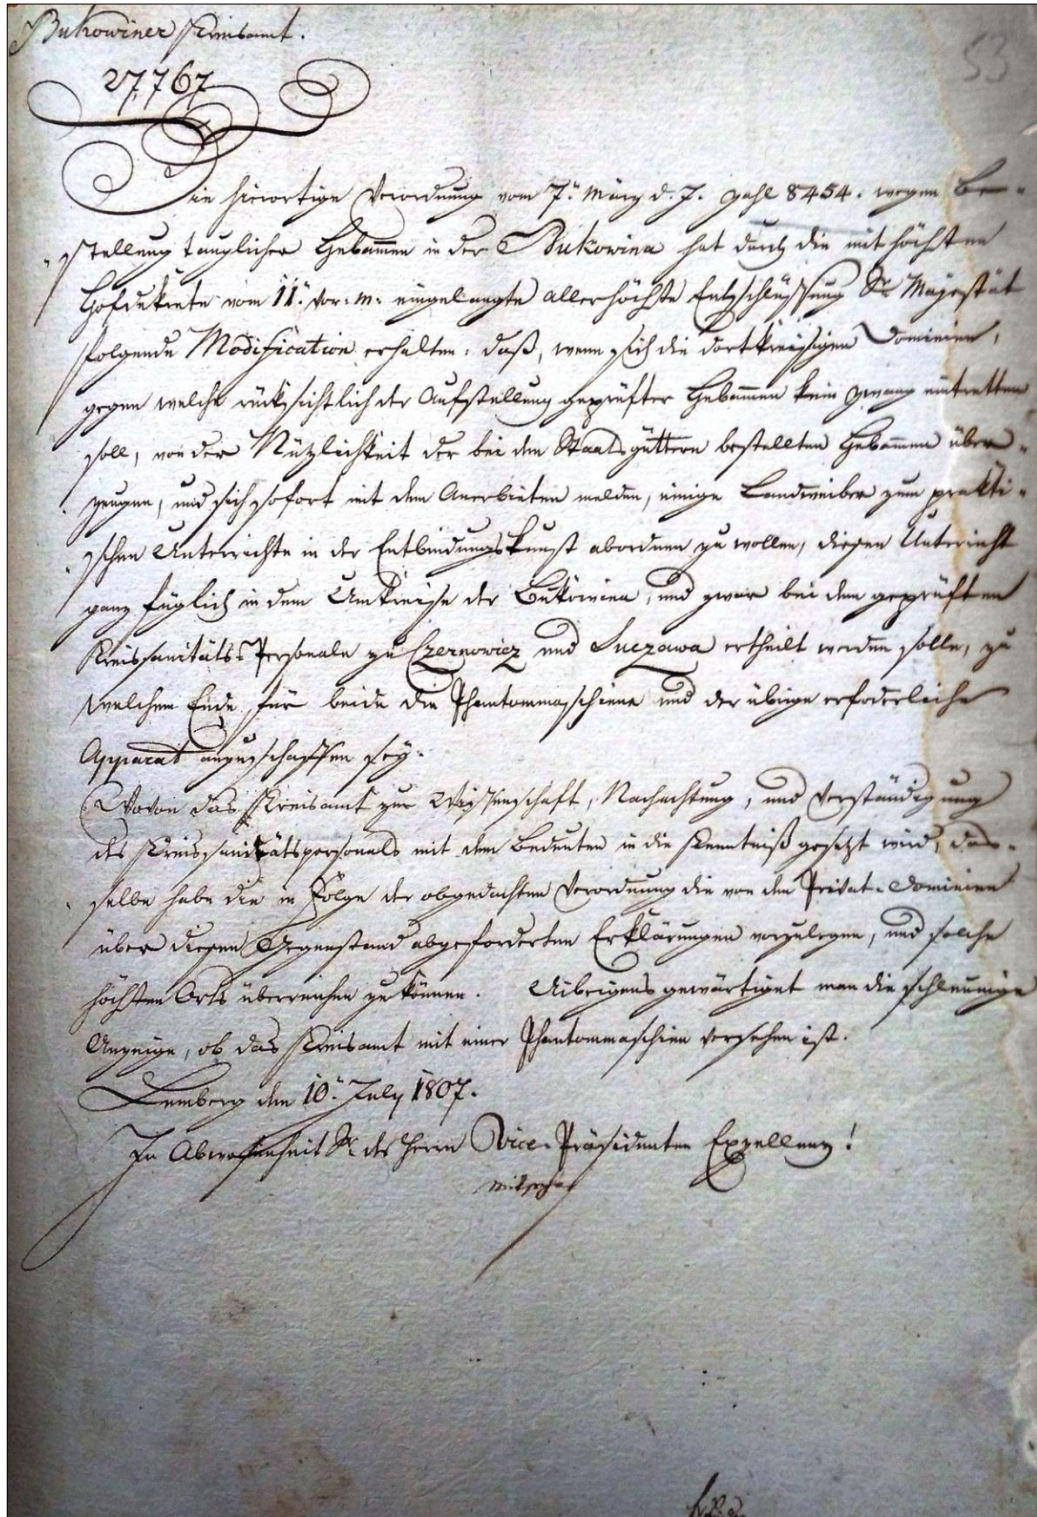 Bukowiner Kreisamt.
53
27,767
Die hierortige Verordnung vom 7n. März d. J. Zahl 8454. wegen Be-
stellung tauglicher Hebammen in der Bukowina hat durch die mit höchsten
Hofdekrete vom 11n. vor. M. eingelangte allerhöchste Entschlüssung Sr Majestät
folgende Modification erhalten: daß, wenn sich die dortkreisigen Dominien,
gegen welche rücksichtlich der Aufstellung geprüfter Hebammen kein Zwang eintretten
soll, von der Nüzlichkeit der bei den Staatsgüttern bestellten Hebammen über-
zeugen, und sich sofort mit dem Anerbieten melden, einige Landweiber zum prakti-
schen Unterrichte in der Entbindungskunst abordnen zu wollen, diesen Unterricht
ganz füglich in dem Umkreise der Bukowina, und zwar bei dem geprüften
Kreissanitäts-Personale zu Czernowicz und Suczawa ertheilt werden solle, zu
welchem Ende für beide die Phantommaschiene und der übrige erforderliche
Apparat anzuschaffen sey.
Wovon das Kreisamt zur Wissenschaft, Nachachtung, und Verständigung
des Kreissanitätspersonals mit dem Bedeuten in die Kenntniß gesetzt wird, das-
selbe habe die in Folge der obgedachten Verordnung die von den Privat-Dominien
über diesen Gegenstand abgeforderten Erklärungen vorzulegen, und solche
höchsten Orts überreichen zu können. Uibrigens gewärtiget man die schleunige
Anzeige, ob das Kreisamt mit einer Phantommaschien versehen ist.
Lemberg den 10n. July 1807.
In Abwesenheit Sr. des Herrn Vice-Präsidenten Exzellenz!